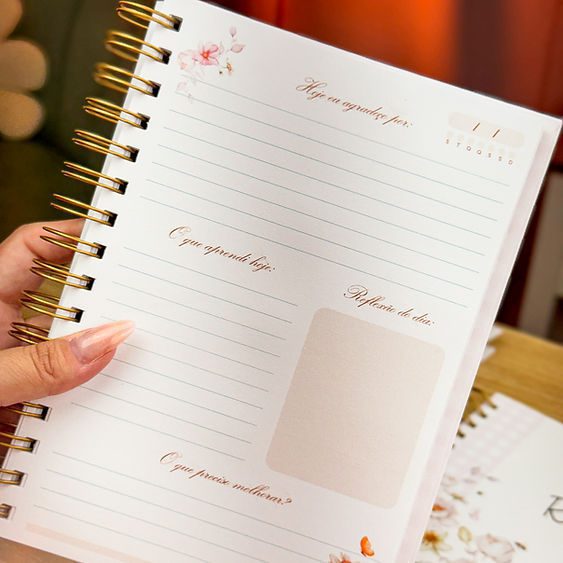 Hoje eu agradeço por:
/ /
S T Q Q S S D
O que aprendi hoje:
Reflexão do dia:
O que preciso melhorar?